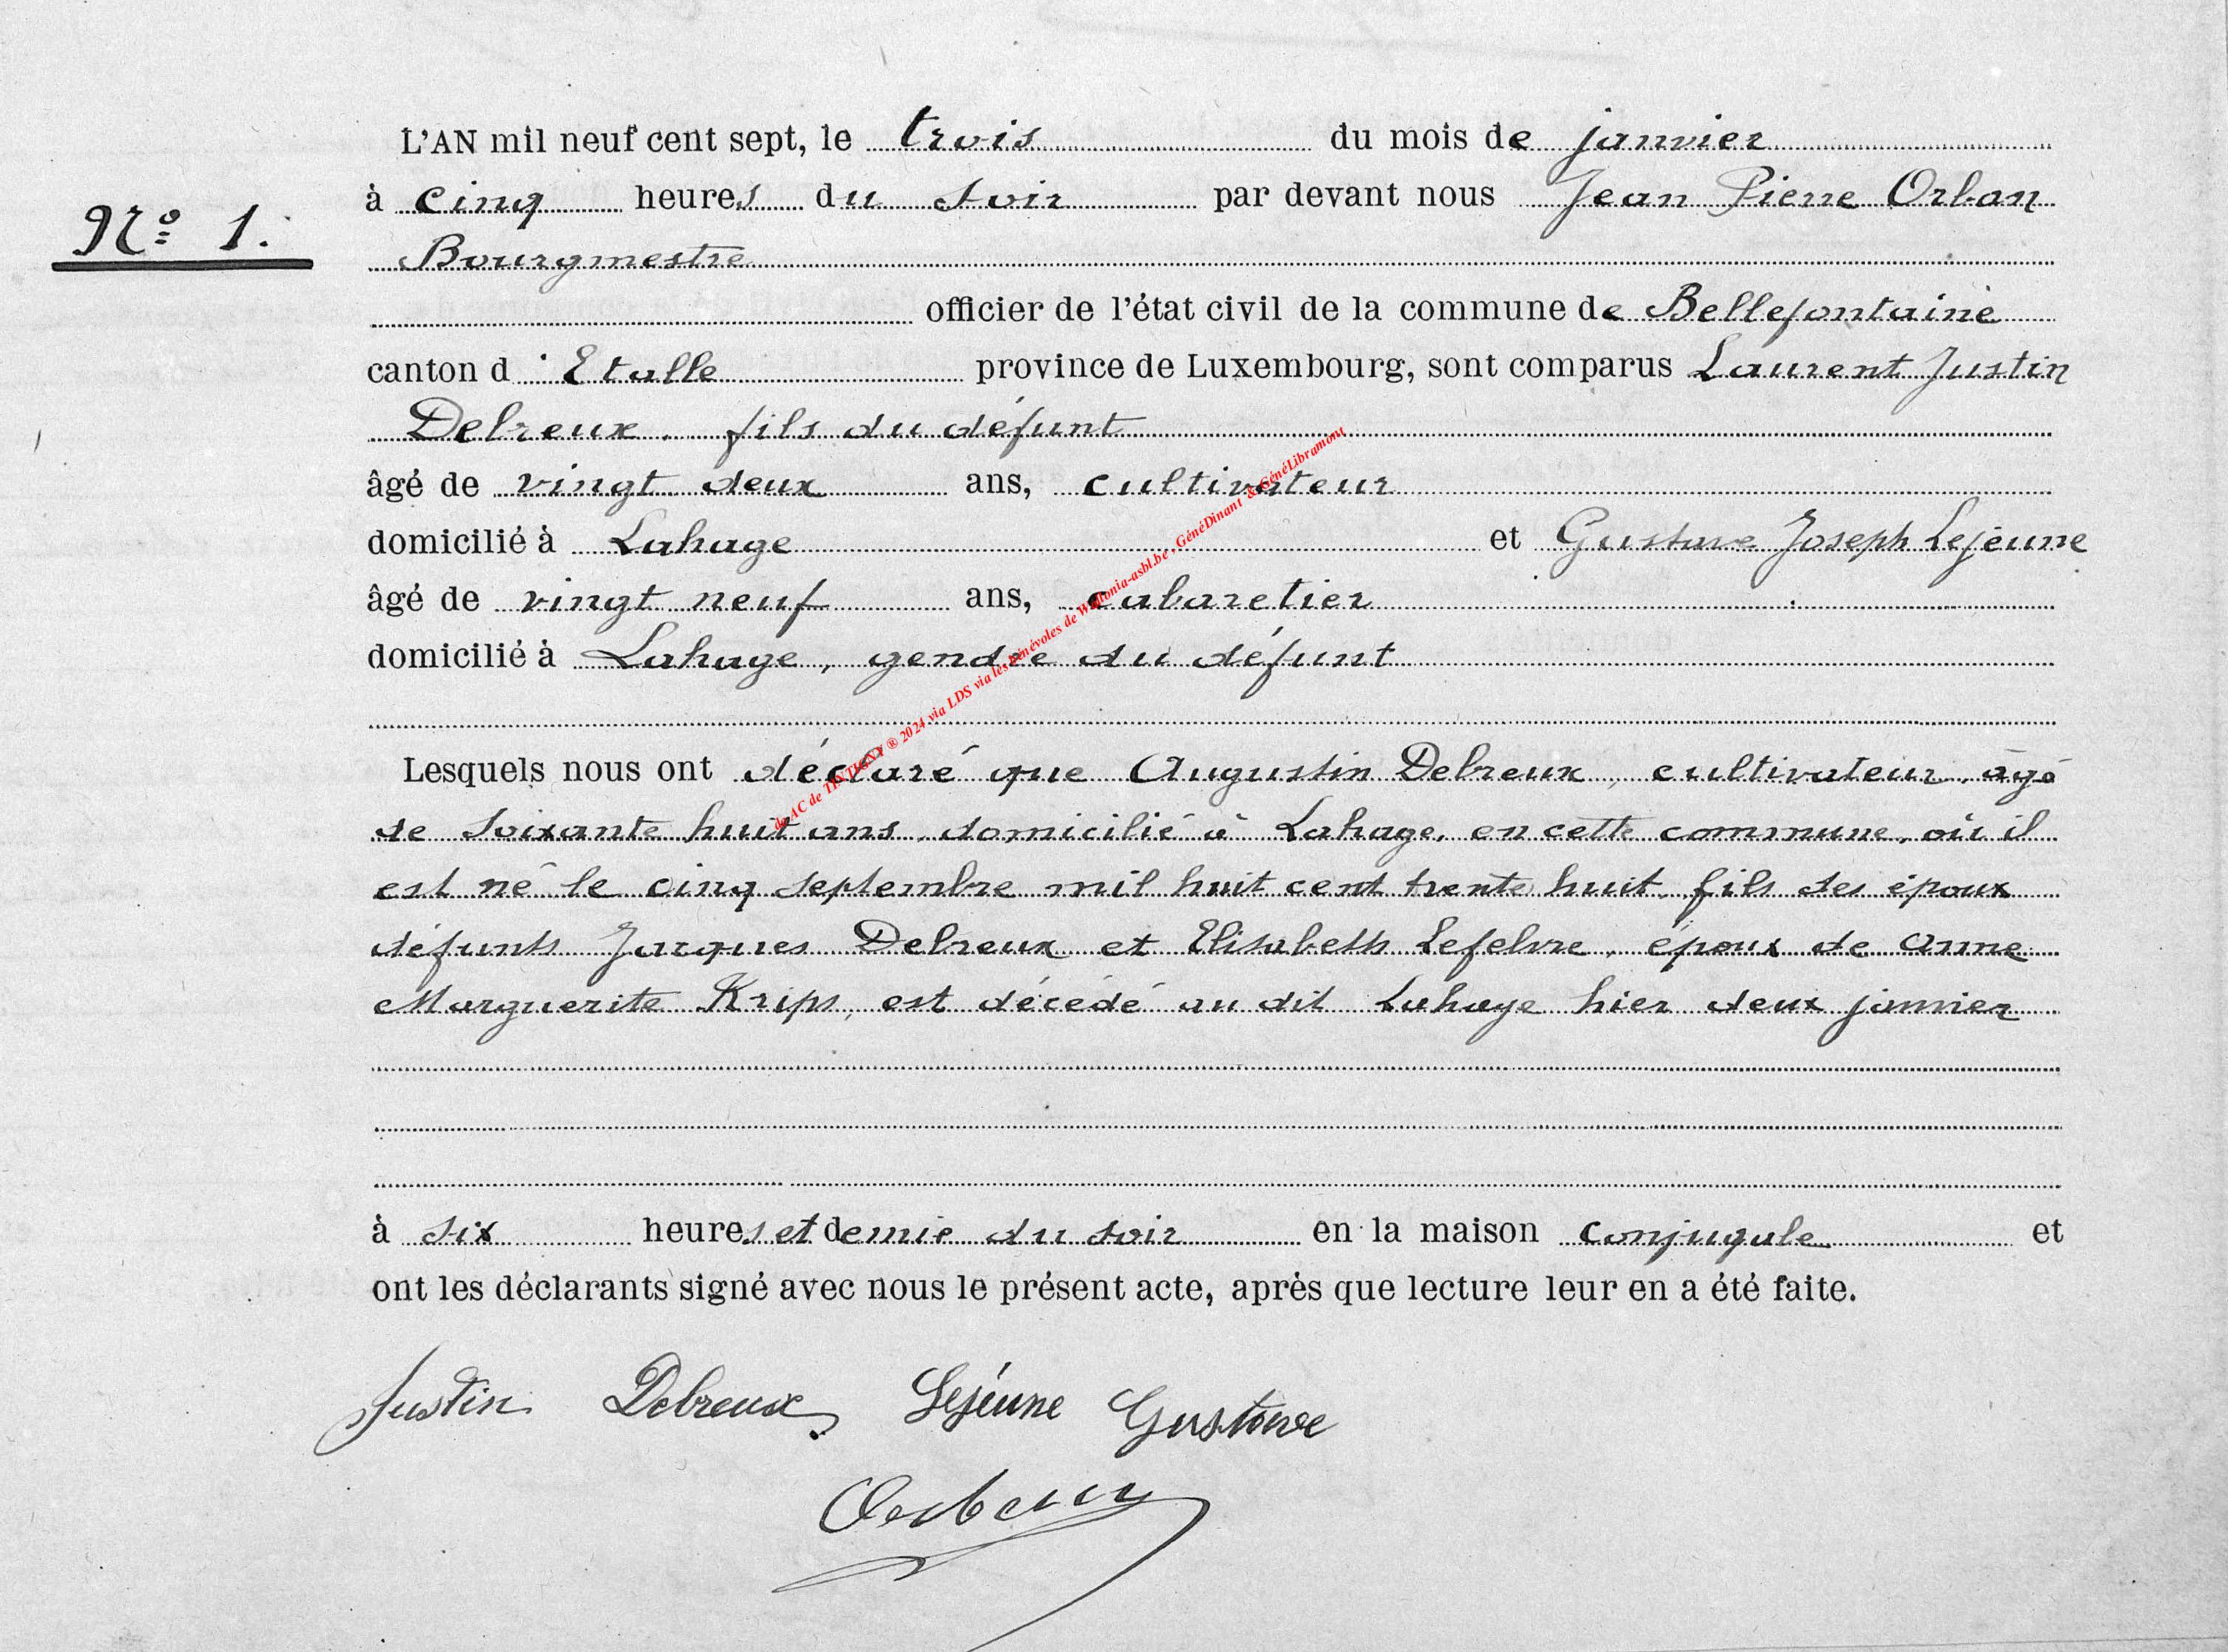 L'AN mil neuf cent sept, le trois du mois de janvier
à cinq heures du soir par devant nous Jean Pierre Orban
N° 1.
Bourgmestre
officier de l'état civil de la commune de Bellefontaine
canton d'Etalle province de Luxembourg, sont comparus Laurent Justin
Debreux, fils du défunt
âgé de vingt deux ans, cultivateur
domicilié à Lahage et Gustave Joseph Lejeune
âgé de vingt neuf ans, cabaretier
domicilié à Lahage, gendre du défunt
Lesquels nous ont déclaré que Augustin Debreux, cultivateur, âgé
de soixante huit ans, domicilié à Lahage, en cette commune, où il
est né le cinq septembre mil huit cent trente huit, fils des époux
défunts Jacques Debreux et Elisabeth Lefebvre, époux de Anne
Marguerite Krips, est décédé au dit Lahage hier deux janvier
à six heures et demie du soir en la maison conjugale et
ont les déclarants signé avec nous le présent acte, après que lecture leur en a été faite.
Justin Debreux Lejéune Gustave
Orban
de AC de TINTIGNY ® 2024 via LDS via les bénévoles de Wallonia-asbl.be, GénéDinant & GénéLibramont